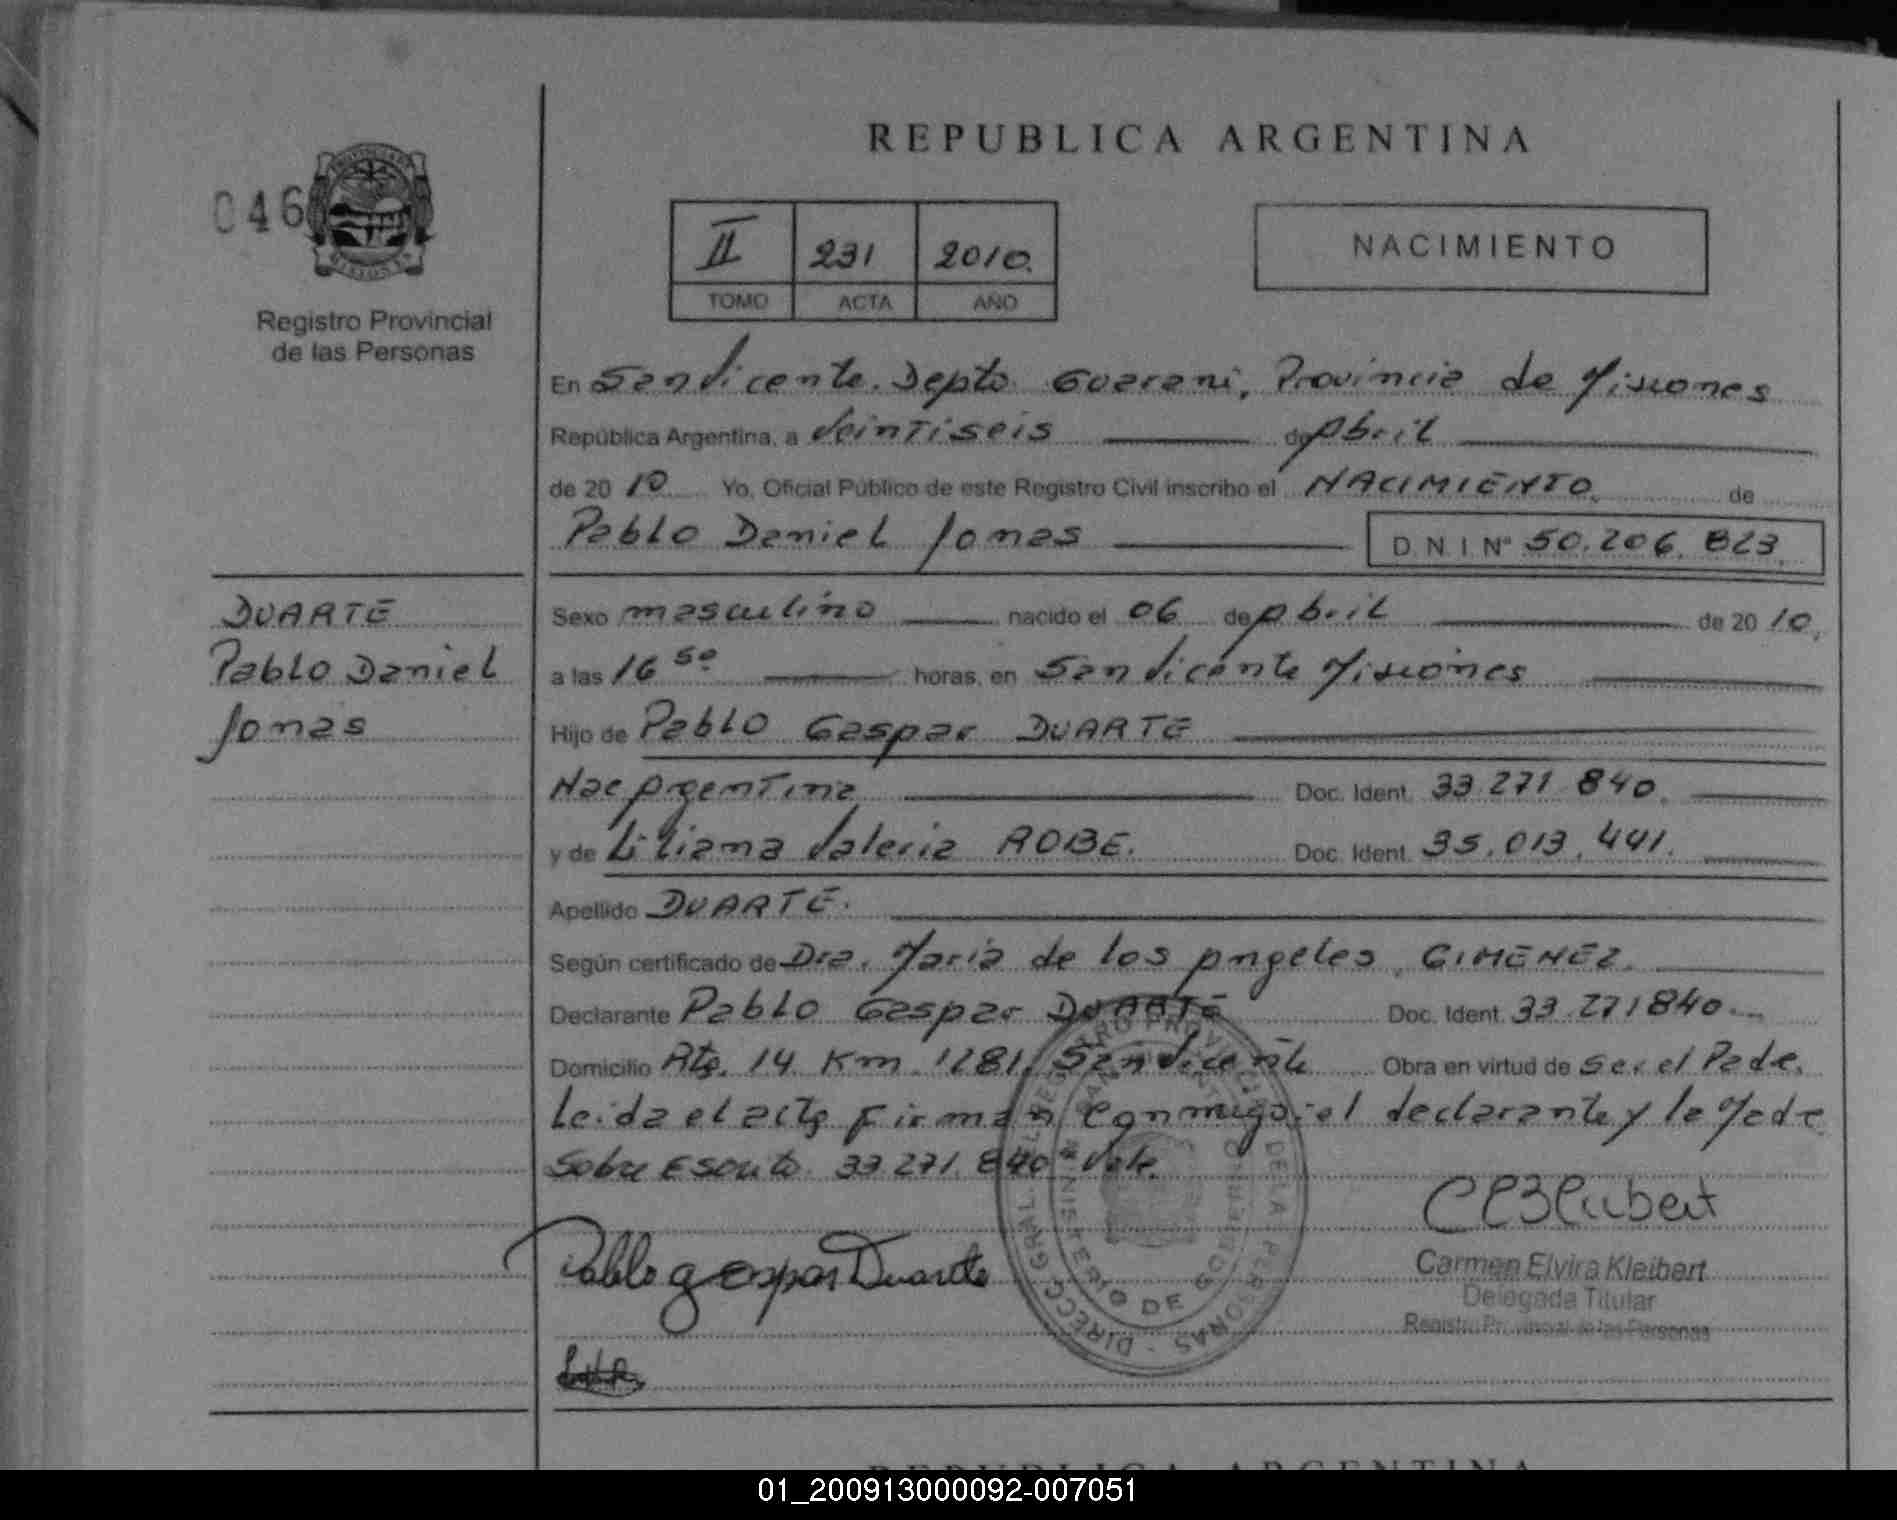 REPUBLICA ARGENTINA
046
PROVINCIA DE
MISIONES
Registro Provincial
de las Personas
II 231 2010.
TOMO ACTA AÑO
NACIMIENTO
En San Vicente. Depto. Guarani, Provincia de Misiones
República Argentina, a Veintiseis de Abril
de 20 10 Yo, Oficial Público de este Registro Civil inscribo el NACIMIENTO. de
Pablo Daniel Jonas D.N.I. Nº 50.206.823.
DUARTE
Pablo Daniel
Jonas
Sexo masculino nacido el 06 de Abril de 20 10,
a las 16 50 horas, en San Vicente Misiones
Hijo de Pablo Gaspar DUARTE
Nac Argentina Doc. Ident. 33.271.840.
y de Liliana Valeria ROBE. Doc. Ident. 35.013.441.
Apellido DUARTE.
Según certificado de Dra. Maria de los Angeles GIMENEZ.
Declarante Pablo Gaspar DUARTE Doc. Ident. 33.271840
Domicilio Rta. 14 Km. 1281. San Vicente Obra en virtud de Ser el Padre.
Leida el acta Firman Conmigo: el declarante y la Madre
Sobre Escrito 33.271.840 "Vale.
Pablo gaspar Duarte
Carmen Elvira Kleibert
Delegada Titular
Registro Provincial de las Personas
REPUBLICA ARGENTINA
01_200913000092-007051